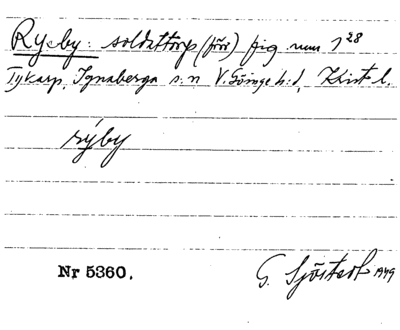 Ryeby: soldattorp (förr) fig num 1²⁸
Tykarp, Ignaberga s:n V. Göinge h:d, Krist l.
rýby
Nr 5360.
G. Sjöstedt 1949